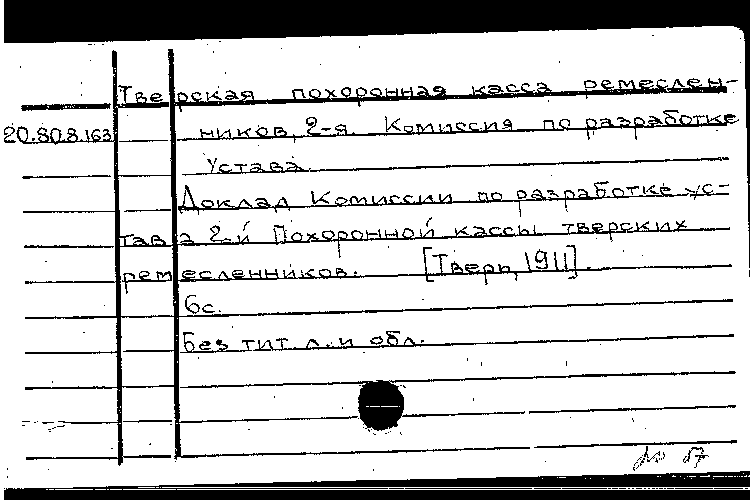 Тверская похоронная касса ремеслен-
20.80.8.163 ников, 2-я. Комиссия по разработке
Устава.
Доклад Комиссии по разработке ус-
тава 2-й Похоронной кассы тверских
ремесленников. [Тверь, 1911].
6с.
Без тит. л. и обл.